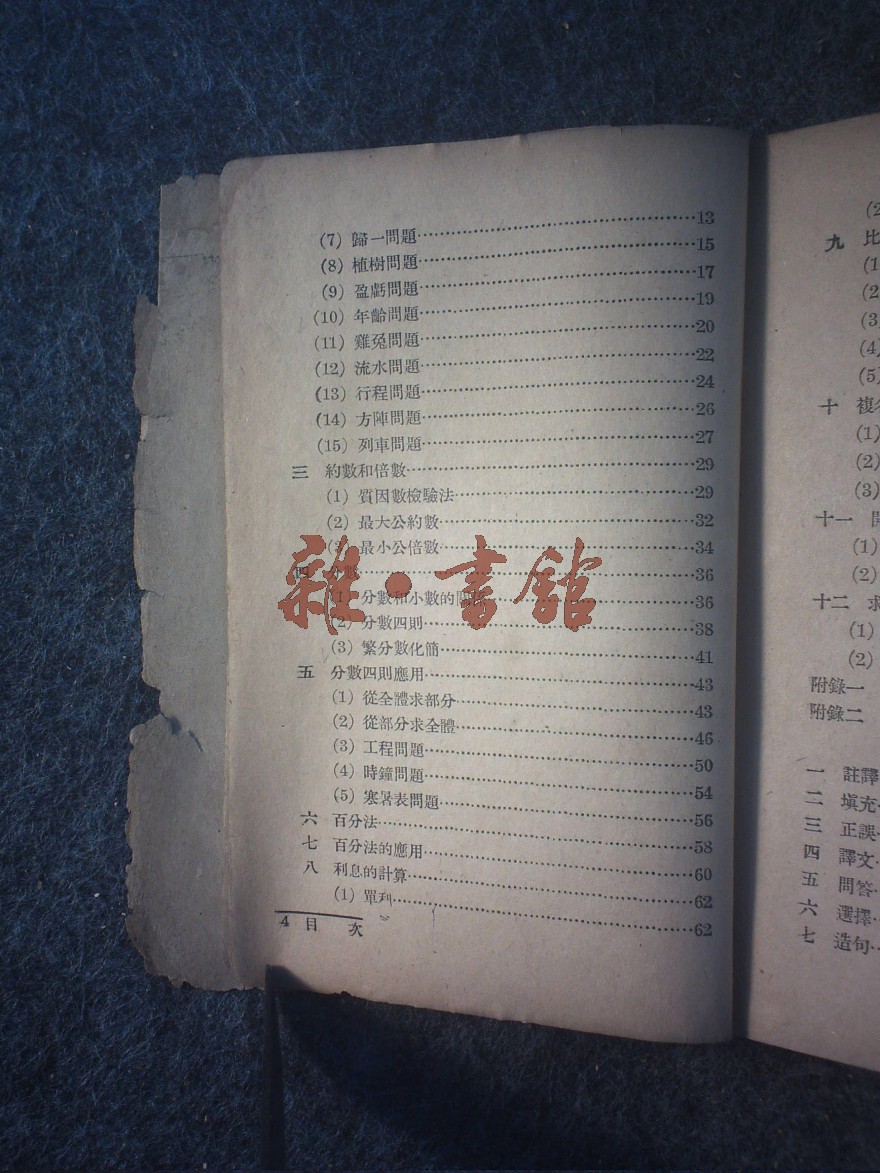 (7) 歸一問題……13
(8) 植樹問題……15
(9) 盈虧問題……17
(10) 年齡問題……19
(11) 雞兔問題……20
(12) 流水問題……22
(13) 行程問題……24
(14) 方陣問題……26
(15) 列車問題……27
三 約數和倍數……29
(1) 質因數檢驗法……29
(2) 最大公約數……32
(3) 最小公倍數……34
四 分數……36
(1) 分數和小數的關係……36
(2) 分數四則……38
(3) 繁分數化簡……41
五 分數四則應用……43
(1) 從全體求部分……43
(2) 從部分求全體……46
(3) 工程問題……50
(4) 時鐘問題……54
(5) 寒暑表問題……56
六 百分法……58
七 百分法的應用……60
八 利息的計算……62
(1) 單利……62
4 目 次
雜·書館
(2
九 比
(1
(2
(3
(4)
(5)
十 複
(1)
(2)
(3)
十一
(1)
(2)
十二 求
(1)
(2)
附錄一
附錄二
一 註譯
二 填充
三 正誤
四 譯文
五 問答
六 選擇
七 造句